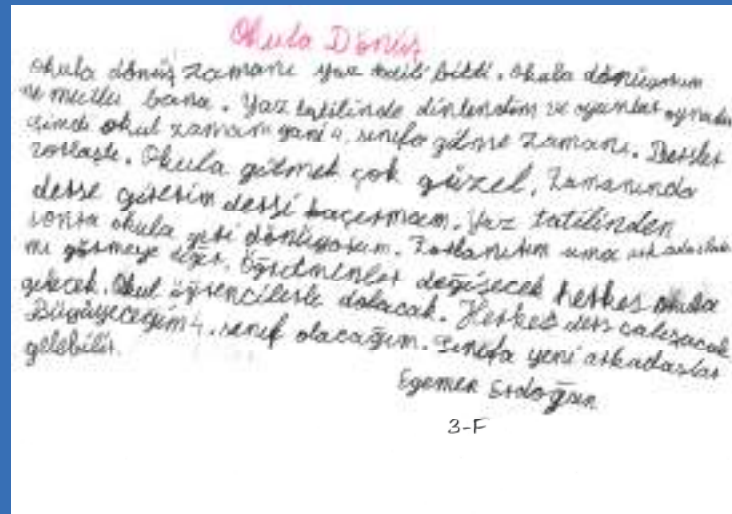 Okula Dönüş
Okula dönüş zamanı yaz tatili bitti. Okula dönüyorum
ne mutlu bana. Yaz tatilinde dinlendim ve oyunlar oynadım
şimdi okul zamanı yani 4. sınıfa gitme zamanı. Dersler
zorlaştı. Okula gitmek çok güzel. Zamanında
derse girerim dersi kaçırmam. Yaz tatilinden
sonra okula geri dönüyorum. Zorlanırım ama arkadaşları
mı görmeye değer. Öğretmenler değişecek herkes okula
gelecek. Okul öğrencilerle dolacak. Herkes ders çalışacak.
Büyüyeceğim 4. sınıf olacağım. Sınıfa yeni arkadaşlar
gelebilir.
Egemen Erdoğan
3-F